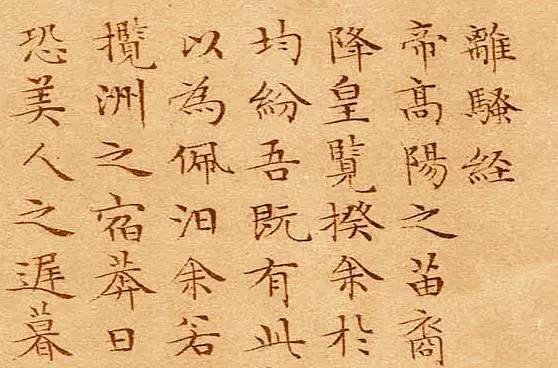 離騷経
帝髙陽之苗裔
降皇覧揆余於
均紛吾既有此
以為佩汨余若
攬洲之宿莽日
恐美人之遅暮